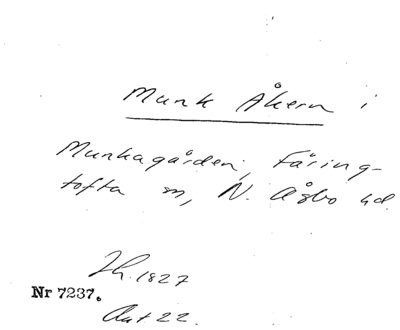 Munk Åkern i
Munkagården, Färing-
tofta sn, N. Åsbo hd.
Zh. 1827
Nr 7237.
Akt 22.